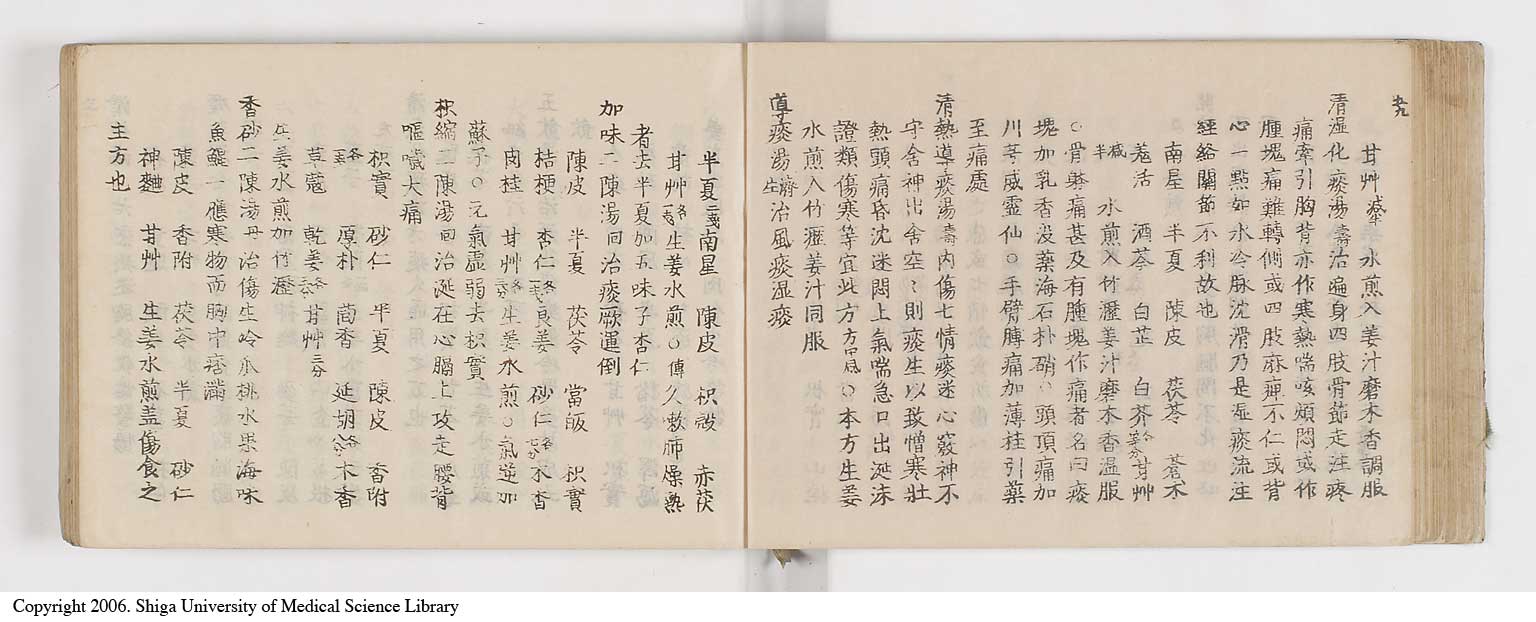 甘艸減半 水煎入姜汁磨木香調服
清湿化痰湯壽治遍身四肢骨節走注疼
痛牽引胸背亦作寒熱喘咳煩悶或作
腫塊痛難轉側或四肢麻痺不仁或背
心一點如水冷脉沈滑乃是湿痰流注
経絡関節不利故也
南星 半夏 陳皮 茯苓 蒼朮
羗活 酒芩 白芷 白芥 甘艸
減半 水煎入竹瀝姜汁磨木香温服
○骨躰痛甚及有腫塊作痛者名曰痰
塊加乳香没薬海石朴硝○頭項痛加
川芎威霊仙○手臂膊痛加薄桂引薬
至痛處
清熱導痰湯壽内傷七情痰迷心竅神不
守舍神出舍空〻則痰生以致憎寒壮
熱頭痛昏沈迷悶上氣喘急口出涎沫
證類傷寒等宜此方 ○本方生姜
水煎入竹瀝姜汁同服
導痰湯済生治風痰湿痰
半夏二戔南星 陳皮 枳殻 赤茯
甘艸 生姜水煎○傅久嗽肺燥熱
者去半夏加五味子杏仁
加味二陳湯回治痰厥運倒
陳皮 半夏 茯苓 當皈 枳實
桔梗 杏仁 良姜 砂仁 木香
肉桂 甘艸 生姜水煎○氣逆加
蘇子○元氣虚弱去枳實
枳縮二陳湯回治涎在心膈上攻走腰背
嘔噦大痛
枳實 砂仁 半夏 陳皮 香附
厚朴 茴香 延胡 木香
草蔲 乾姜 甘艸三分
生姜水煎加竹瀝
香砂二陳湯丹治傷生冷瓜桃水果海味
魚鱉一應寒物而胸中痞滿
陳皮 香附 茯苓 半夏 砂仁
神麯 甘艸 生姜水煎盖傷食之
主方也
Copyright 2006. Shiga University of Medical Science Library